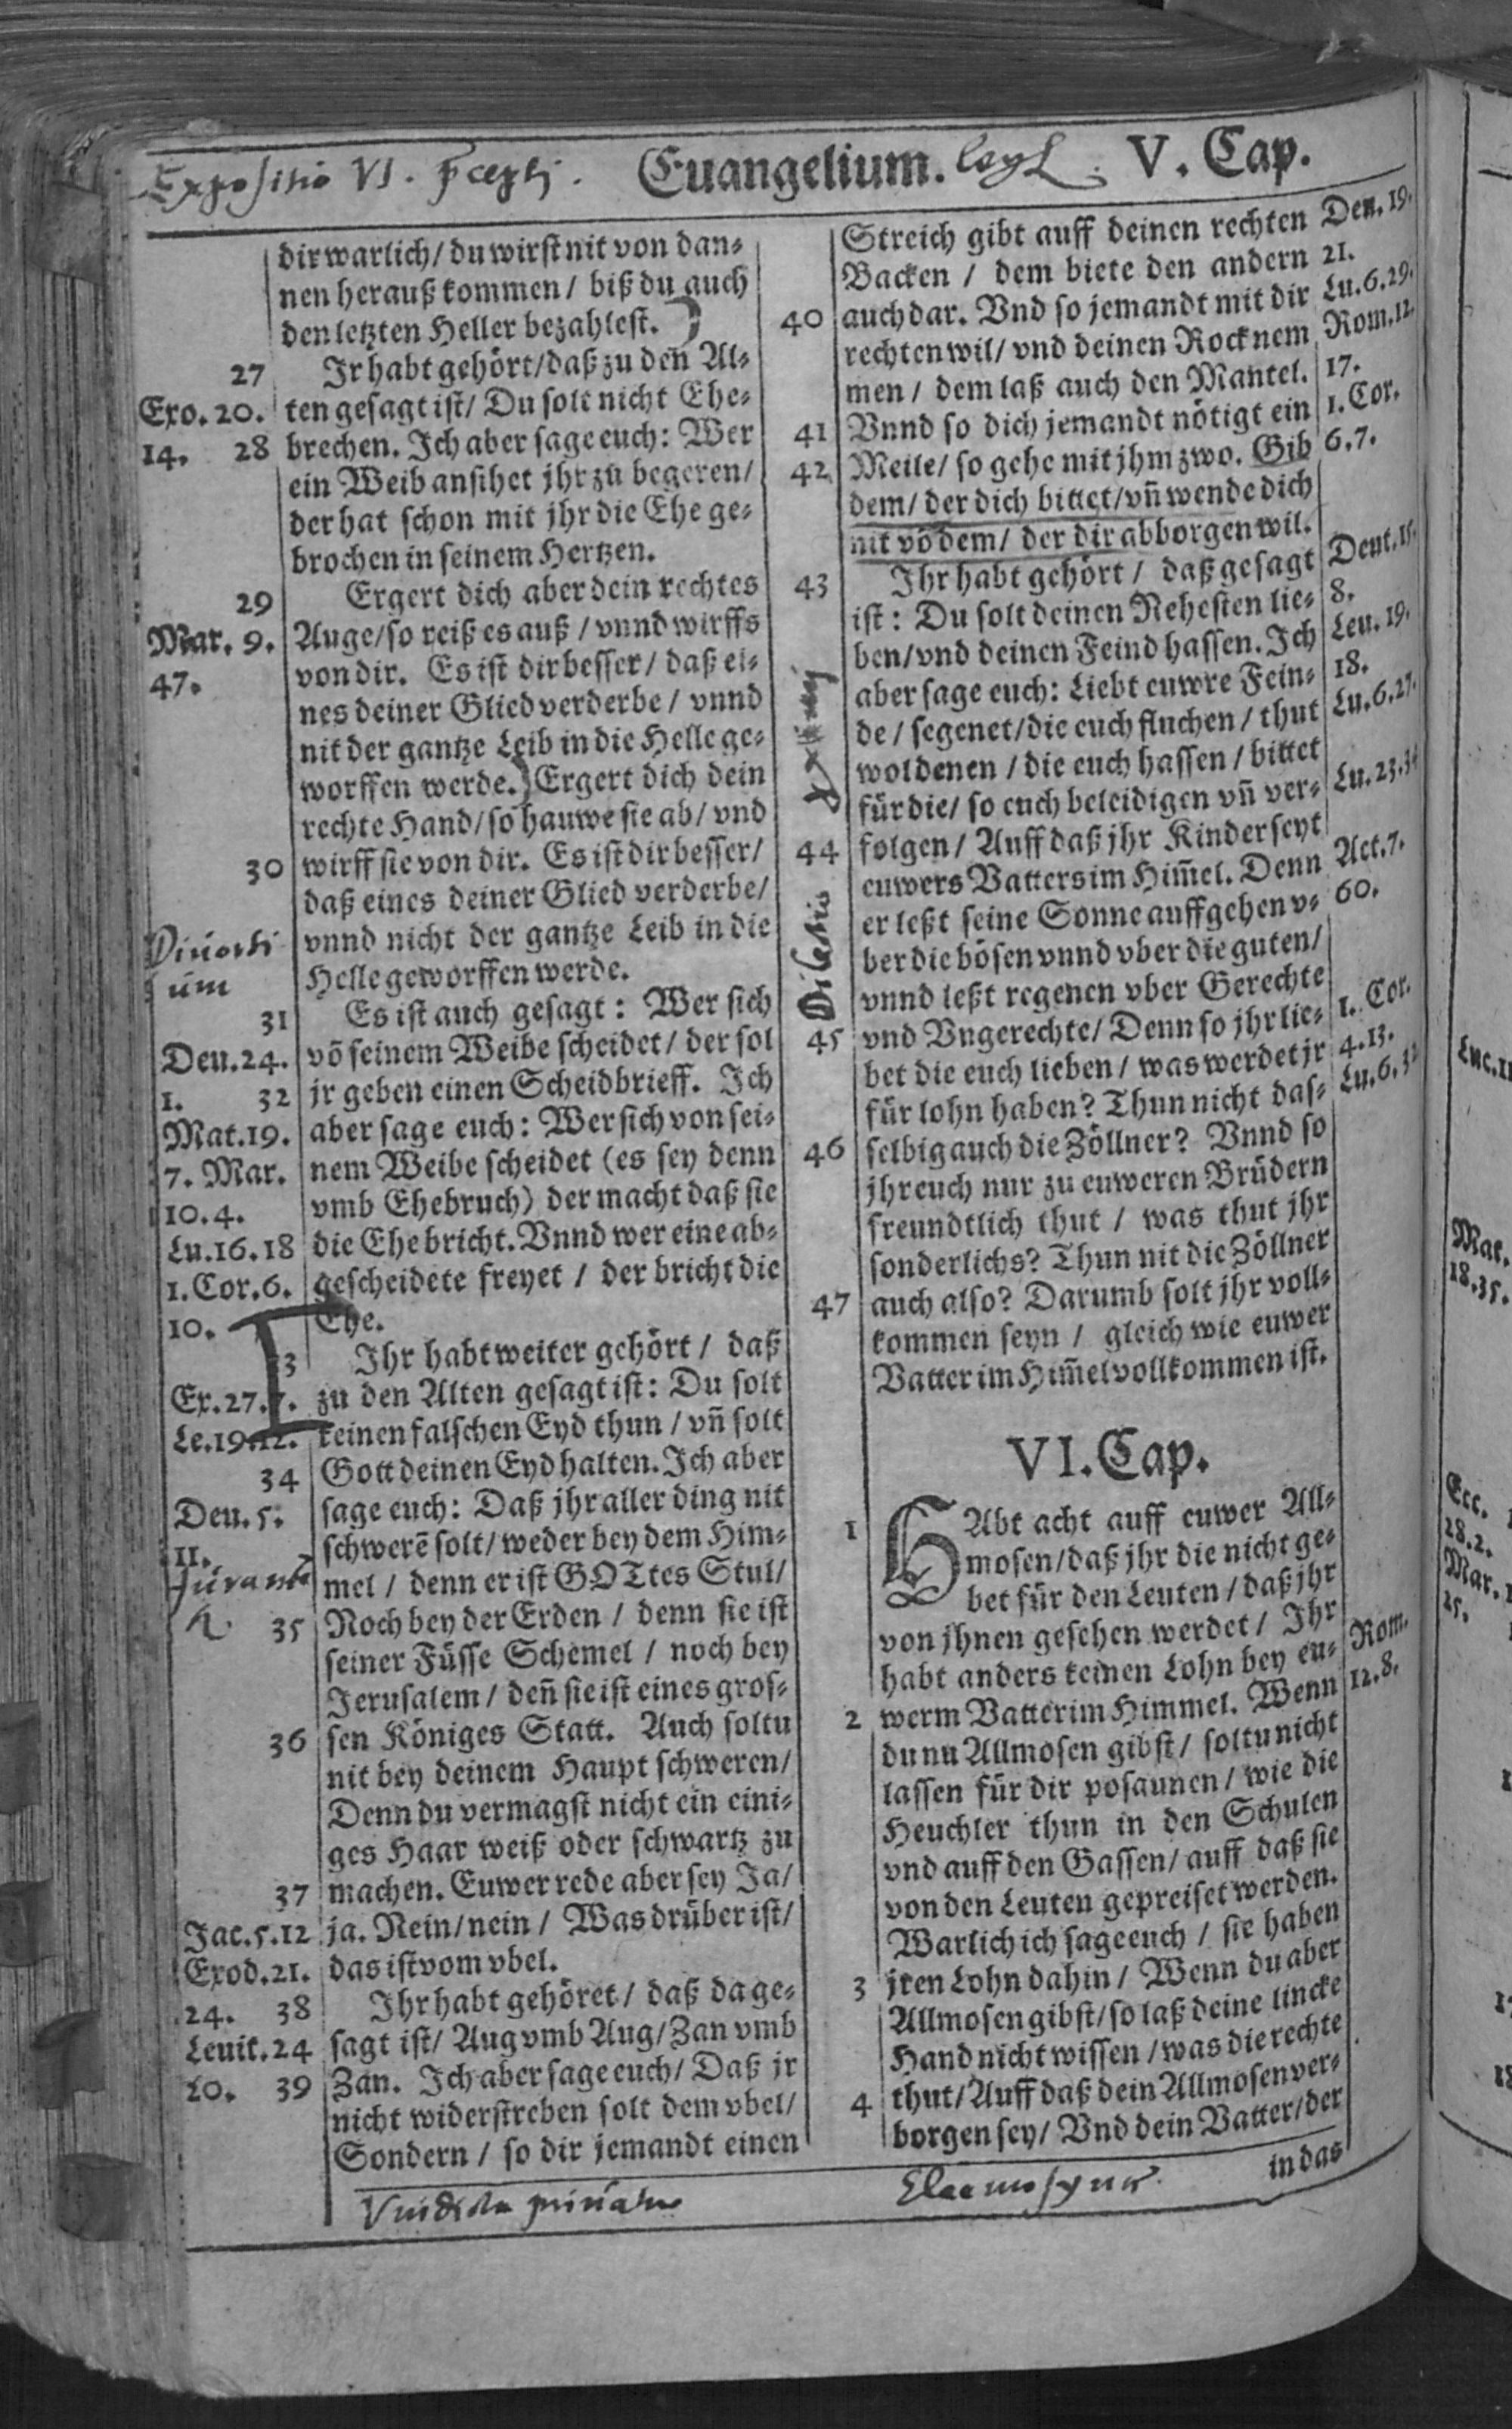 Expositio VI. Euangelium. V. Cap.
dir warlich/ du wirst nit von dan⸗
nen herauß kommen/ biß du auch
den letzten Heller bezahlest.
27 Ir habt gehört/ daß zu den Al⸗
Exo. 20. ten gesagt ist/ Du solt nicht Ehe⸗
14. 28 brechen. Ich aber sage euch: Wer
ein Weib ansihet jhr zu begeren/
der hat schon mit jhr die Ehe ge⸗
brochen in seinem Hertzen.
29 Ergert dich aber dein rechtes
Mar. 9. Auge/ so reiß es auß/ vnnd wirffs
47. von dir. Es ist dir besser/ daß ei⸗
nes deiner Glied verderbe/ vnnd
nit der gantze Leib in die Helle ge⸗
worffen werde. Ergert dich dein
rechte Hand/ so hauwe sie ab/ vnd
30 wirff sie von dir. Es ist dir besser/
daß eines deiner Glied verderbe/
vnnd nicht der gantze Leib in die
Helle geworffen werde.
31 Es ist auch gesagt: Wer sich
Deu. 24. võ seinem Weibe scheidet/ der sol
1. 32 jr geben einen Scheidbrieff. Ich
Mat. 19. aber sage euch: Wer sich von sei⸗
7. Mar. nem Weibe scheidet (es sey denn
10. 4. vmb Ehebruch) der macht daß sie
Lu. 16. 18 die Ehe bricht. Vnnd wer eine ab⸗
1. Cor. 6. gescheidete freyet/ der bricht die
10. Ehe.
Ihr habt weiter gehört/ daß
Ex. 27. 7. zu den Alten gesagt ist: Du solt
Le. 19. 12. keinen falschen Eyd thun/ vñ solt
34 Gott deinen Eyd halten. Ich aber
Deu. 5. sage euch: Daß jhr aller ding nit
11. schwerẽ solt/ weder bey dem Him⸗
mel/ denn er ist GOTtes Stul/
35 Noch bey der Erden/ denn sie ist
seiner Füsse Schemel/ noch bey
Jerusalem/ deñ sie ist eines gros⸗
36 sen Königes Statt. Auch soltu
nit bey deinem Haupt schweren/
Denn du vermagst nicht ein eini⸗
ges Haar weiß oder schwartz zu
37 machen. Euwer rede aber sey Ja/
Jac. 5. 12 ja. Nein/ nein/ Was drüber ist/
Exod. 21. das ist vom vbel.
24. 38 Ihr habt gehöret/ daß da ge⸗
Leuit. 24 sagt ist/ Aug vmb Aug/ Zan vmb
20. 39 Zan. Ich aber sage euch/ Daß jr
nicht widerstreben solt dem vbel/
Sondern/ so dir jemandt einen
Streich gibt auff deinen rechten Deu. 19.
Backen/ dem biete den andern 21.
40 auch dar. Vnd so jemandt mit dir Lu. 6. 29.
rechten wil/ vnd deinen Rock nem Rom. 12.
men/ dem laß auch den Mantel. 17.
41 Vnnd so dich jemandt nötigt ein 1. Cor.
42 Meile/ so gehe mit jhm zwo. Gib 6. 7.
dem/ der dich bittet/ vñ wende dich
nit võ dem/ der dir abborgen wil.
43 Ihr habt gehört/ daß gesagt Deut. 15.
ist: Du solt deinen Nehesten lie⸗ 8.
ben/ vnd deinen Feind hassen. Ich Leu. 19.
aber sage euch: Liebt euwre Fein⸗ 18.
de/ segenet/ die euch fluchen/ thut Lu. 6. 27.
wol denen/ die euch hassen/ bittet
für die/ so euch beleidigen vñ ver⸗ Lu. 23. 34
44 folgen/ Auff daß jhr Kinder seyt
euwers Vatters im Him̃el. Denn Act. 7.
er leßt seine Sonne auffgehen v⸗ 60.
ber die bösen vnnd vber die guten/
vnnd leßt regenen vber Gerechte
45 vnd Vngerechte/ Denn so jhr lie⸗ 1. Cor.
bet die euch lieben/ was werdet jr 4. 13.
für lohn haben? Thun nicht das⸗ Lu. 6. 32
46 selbig auch die Zöllner? Vnnd so
jhr euch nur zu euweren Brüdern
freundtlich thut/ was thut jhr
sonderlichs? Thun nit die Zöllner
47 auch also? Darumb solt jhr voll⸗
kommen seyn/ gleich wie euwer
Vatter im Him̃el vollkommen ist.
VI. Cap.
1 HAbt acht auff euwer All⸗
mosen/ daß jhr die nicht ge⸗
bet für den Leuten/ daß jhr
von jhnen gesehen werdet/ Ihr
habt anders keinen Lohn bey eu⸗ Rom.
2 werm Vatter im Himmel. Wenn 12. 8.
du nu Allmosen gibst/ soltu nicht
lassen für dir posaunen/ wie die
Heuchler thun in den Schulen
vnd auff den Gassen/ auff daß sie
von den Leuten gepreiset werden.
Warlich ich sage euch/ sie haben
3 jren Lohn dahin/ Wenn du aber
Allmosen gibst/ so laß deine lincke
Hand nicht wissen/ was die rechte
4 thut/ Auff daß dein Allmosen ver⸗
borgen sey/ Vnd dein Vatter/ der
in das